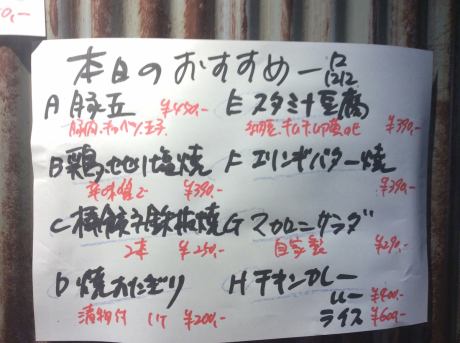 0,-
本日のおすすめ一品
12/12
A 豚玉 ¥450,-
豚肉、キャベツ、玉子
B 鶏せせり塩焼
¥390,-
C 棒餃子鉄板焼
2本 ¥250,-
D 焼おにぎり
漬物付 1ケ ¥200,-
E スタミナ豆腐
納豆、キムチ、卵黄のせ ¥390,-
F エリンギバター焼
¥390,-
G マカロニサラダ
自家製 ¥290,-
H チキンカレー
ルー ¥400,-
ライス ¥600,-